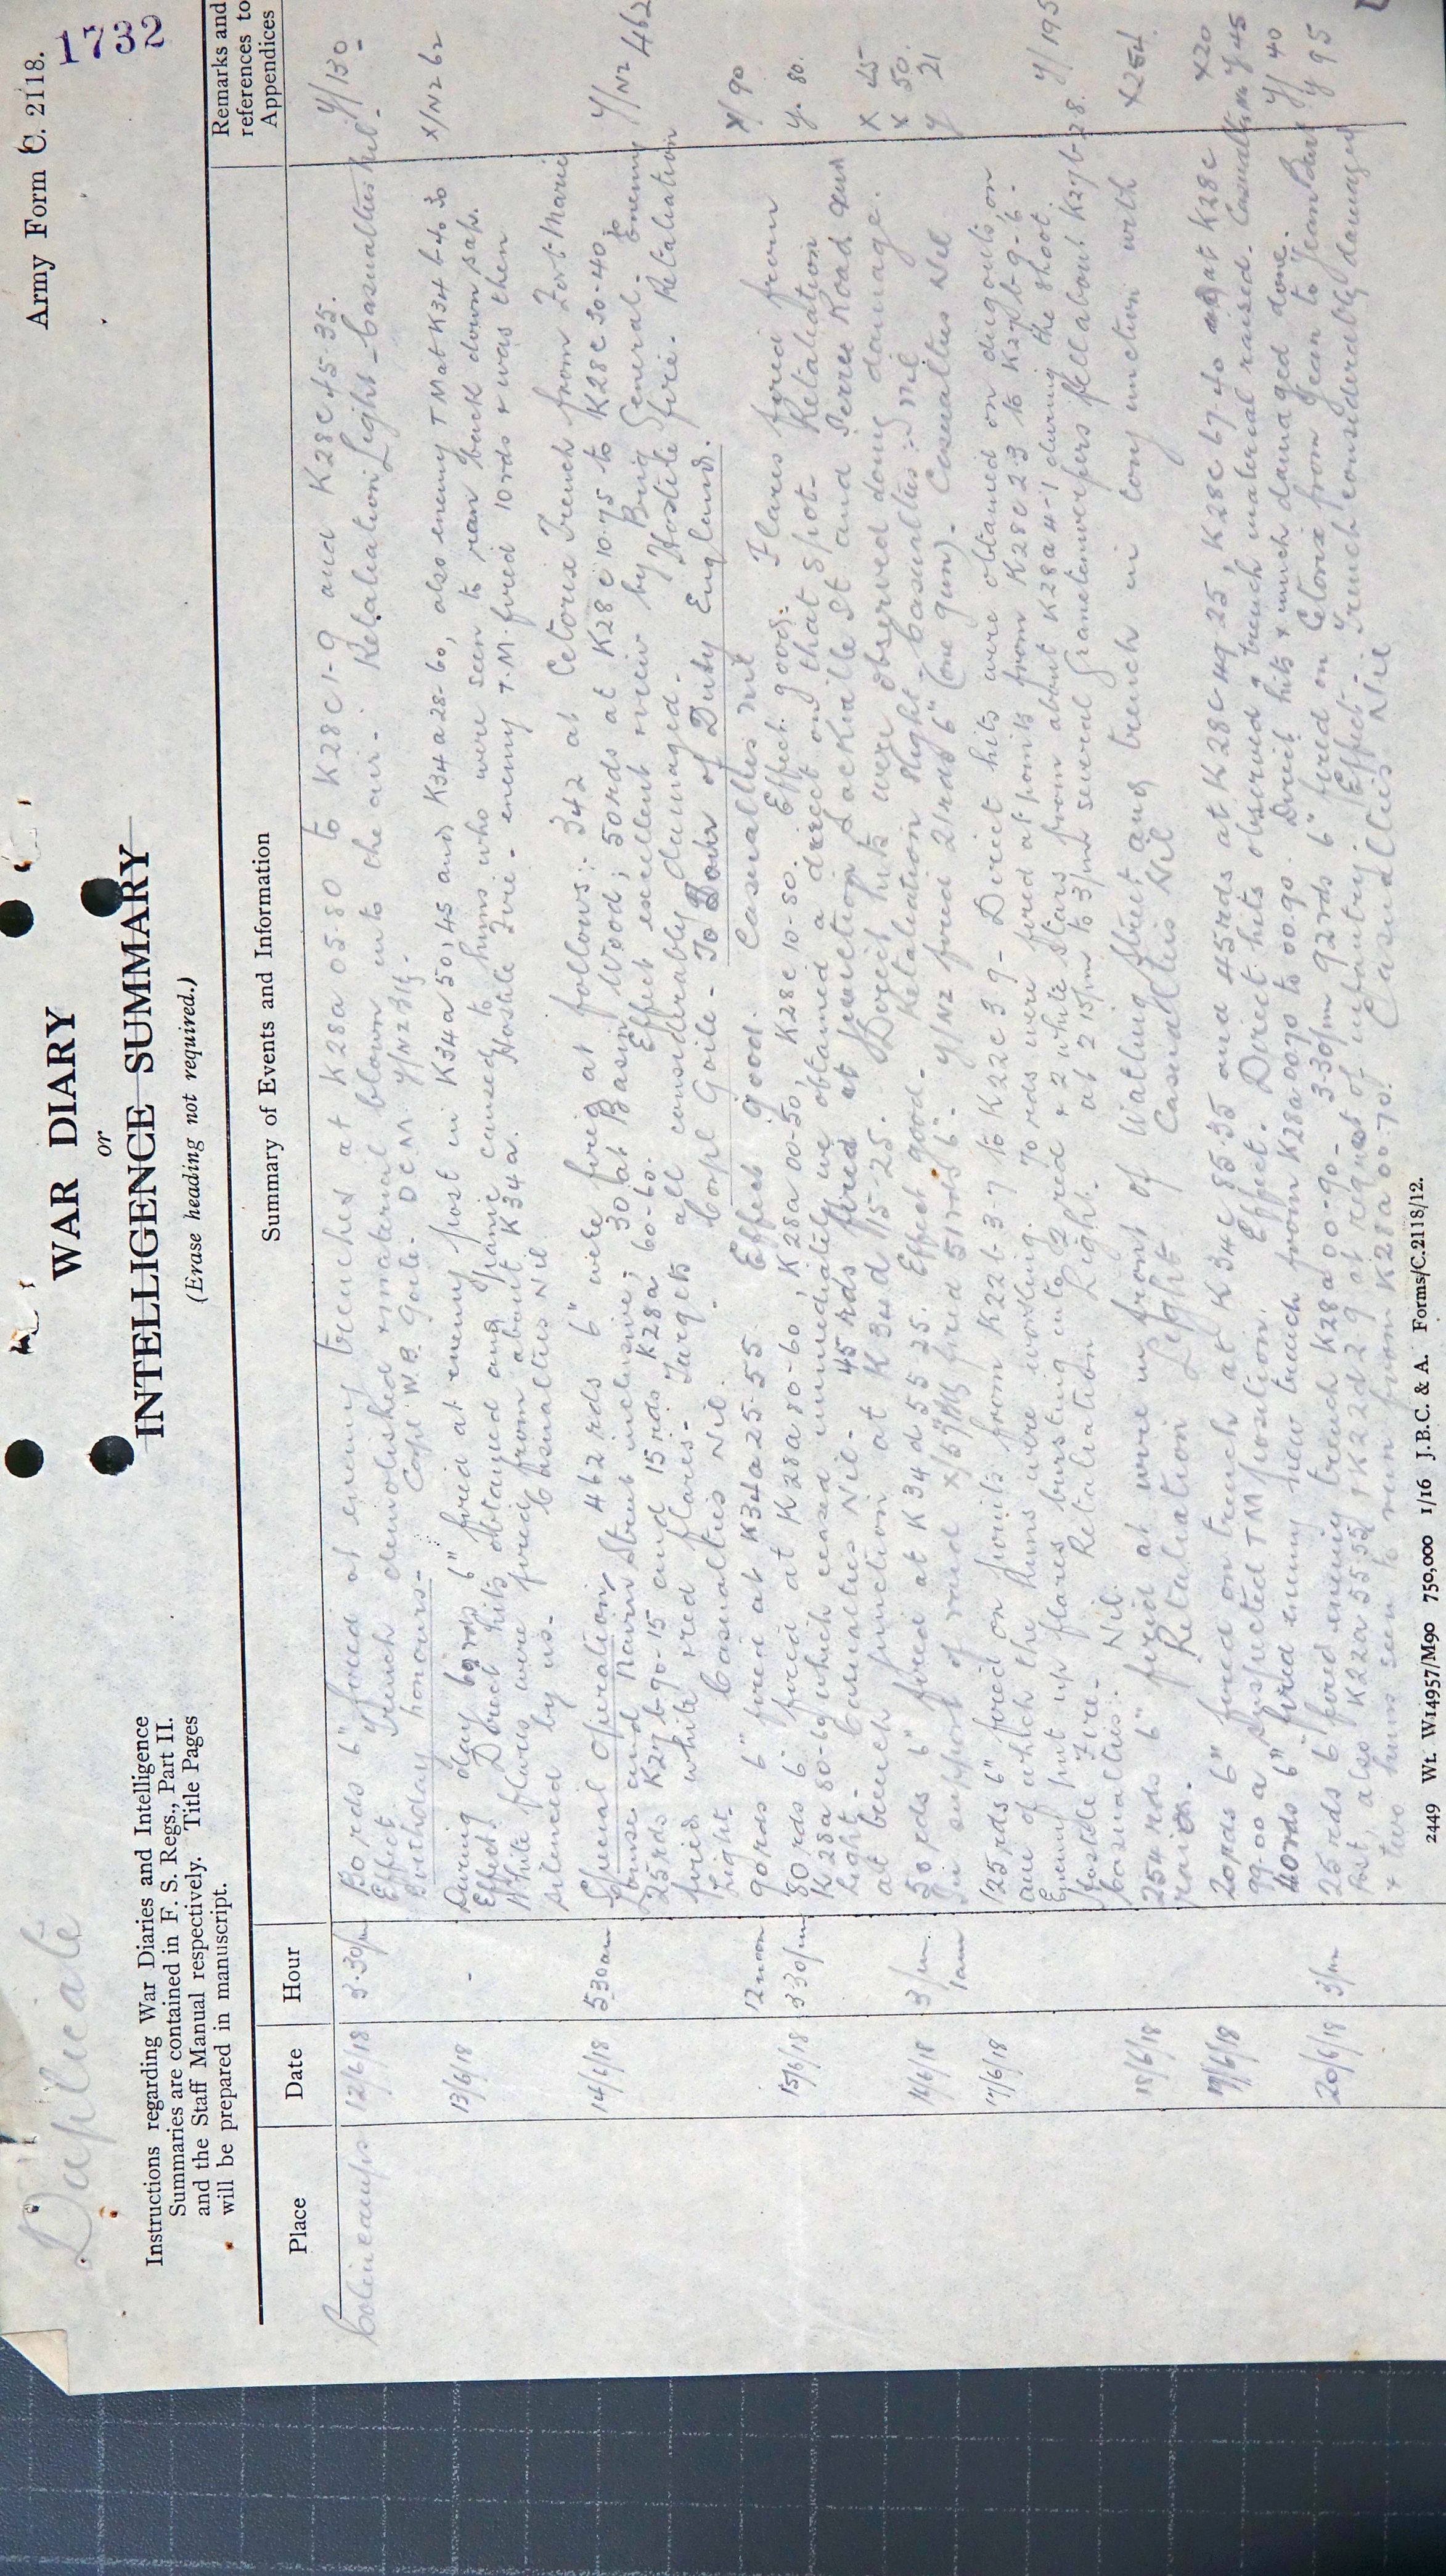 Duplicate
Army Form C. 2118.
1732
WAR DIARY
or
INTELLIGENCE SUMMARY
(Erase heading not required.)
Instructions regarding War Diaries and Intelligence
Summaries are contained in F. S. Regs., Part II.
and the Staff Manual respectively. Title Pages
will be prepared in manuscript.
Place Date Hour Summary of Events and Information Remarks and references to Appendices
Colincamps 12/6/18 3.30pm rds 6" fired at enemy trenches at K28a 05.80 to K28c 1-9 and K28c 45-35. Y/130
Effect. Trench demolished & material blown into the air. Retaliation Light - Casualties nil.
Birthday honours - Corpl W.B. Goile. DCM. Y/NZ
13/6/18 - During day rds 6" fired at enemy post in K34a 50.45 and K34a 28-60, also enemy TM at K34 b 40.30 X/NZ 62
Effect: Direct hits obtained and panic caused to huns who were seen to run back down sap.
White flares were fired from about K34a. Hostile Fire - enemy T.M. fired 10 rds & was then
silenced by us. Casualties Nil
14/6/18 530am Special Operation. 462 rds 6" were fired as follows: 342 at Cetorix Trench from Fort Marie Y/NZ 462
House and Nairn Street inclusive; 30 at Basin Wood; 50 rds at K28c 10.75 to K28c 30-40;
25 rds K27b.90-15 and 15 rds K28a 60-60. Effect excellent review by Brig General. Enemy
fired white & red flares - Targets all considerably damaged. Hostile fire. Retaliation
light. Casualties Nil. Corpl Goile - To Tour of Duty England.
12 noon 90 rds 6" fired at K34a 25-55. Effect good. Casualties nil X/90
15/6/18 330pm 80 rds 6" fired at K28a 80-60, K28a 00-50, K28c 10-80. Effect good. Flares fired from Y. 80.
K28a 80-60 which ceased immediately we obtained a direct on that spot. Retaliation
light. Casualties Nil - 45 rds fired at junction Jackville St and Serre Road and X 45
at trench junction at K34d 15-25. Direct hits were observed doing damage.
16/6/18 3pm. 50 rds 6" fired at K34d 55-25. Effect good - Retaliation slight. Casualties: nil X 50.
1am In support of raid X/ fired 51 rds 6". Y/NZ fired 21 rds 6" (one gun). Casualties Nil Y 21
17/6/18 125 rds 6" fired on points from K22b-3-7 to K22c 3.9 - Direct hits were obtained on dugouts on
one of which the huns were working. 70 rds were fired at points from K28c 2.3 to K27b-9-6. Y/195
Enemy put up flares bursting into 2 red & 2 white stars from about K28a 4-1 during the shoot.
hostile Fire - Retaliation Light. at 2 15pm to 3pm several Granatenwerfers fell about K27b-28.
Casualties: Nil.
18/6/18 254 rds 6" fired at wire in front of Watling Street and trench in conjunction with X254
raid. Retaliation Light. Casualties Nil
19/6/18 20 rds 6" fired on trench at K34c 85.35 and 45 rds at K28c 49.25, K28c 67-40 and at K28c X20
99.00 a suspected TM position. Effect. Direct hits observed & trench material raised. Casualties Nil Y45
40 rds 6" fired enemy new trench from K28a.0090 to 00.90. Direct hits & much damaged done. Y/ 40
20/6/18 3pm 25 rds 6" fired enemy trench K28a 00-90 - 3.30pm 92 rds 6" fired on Cetorix from Jean to Jean Bart Y 95
Post, also K22a 55.55, K22d 2.9 at request of infantry. Effect - Trench considerably damaged
& two huns seen to run from K28a 00.70. Casualties Nil
2449 Wt. W14957/M90 750,000 1/16 J.B.C. & A. Forms/C.2118/12.